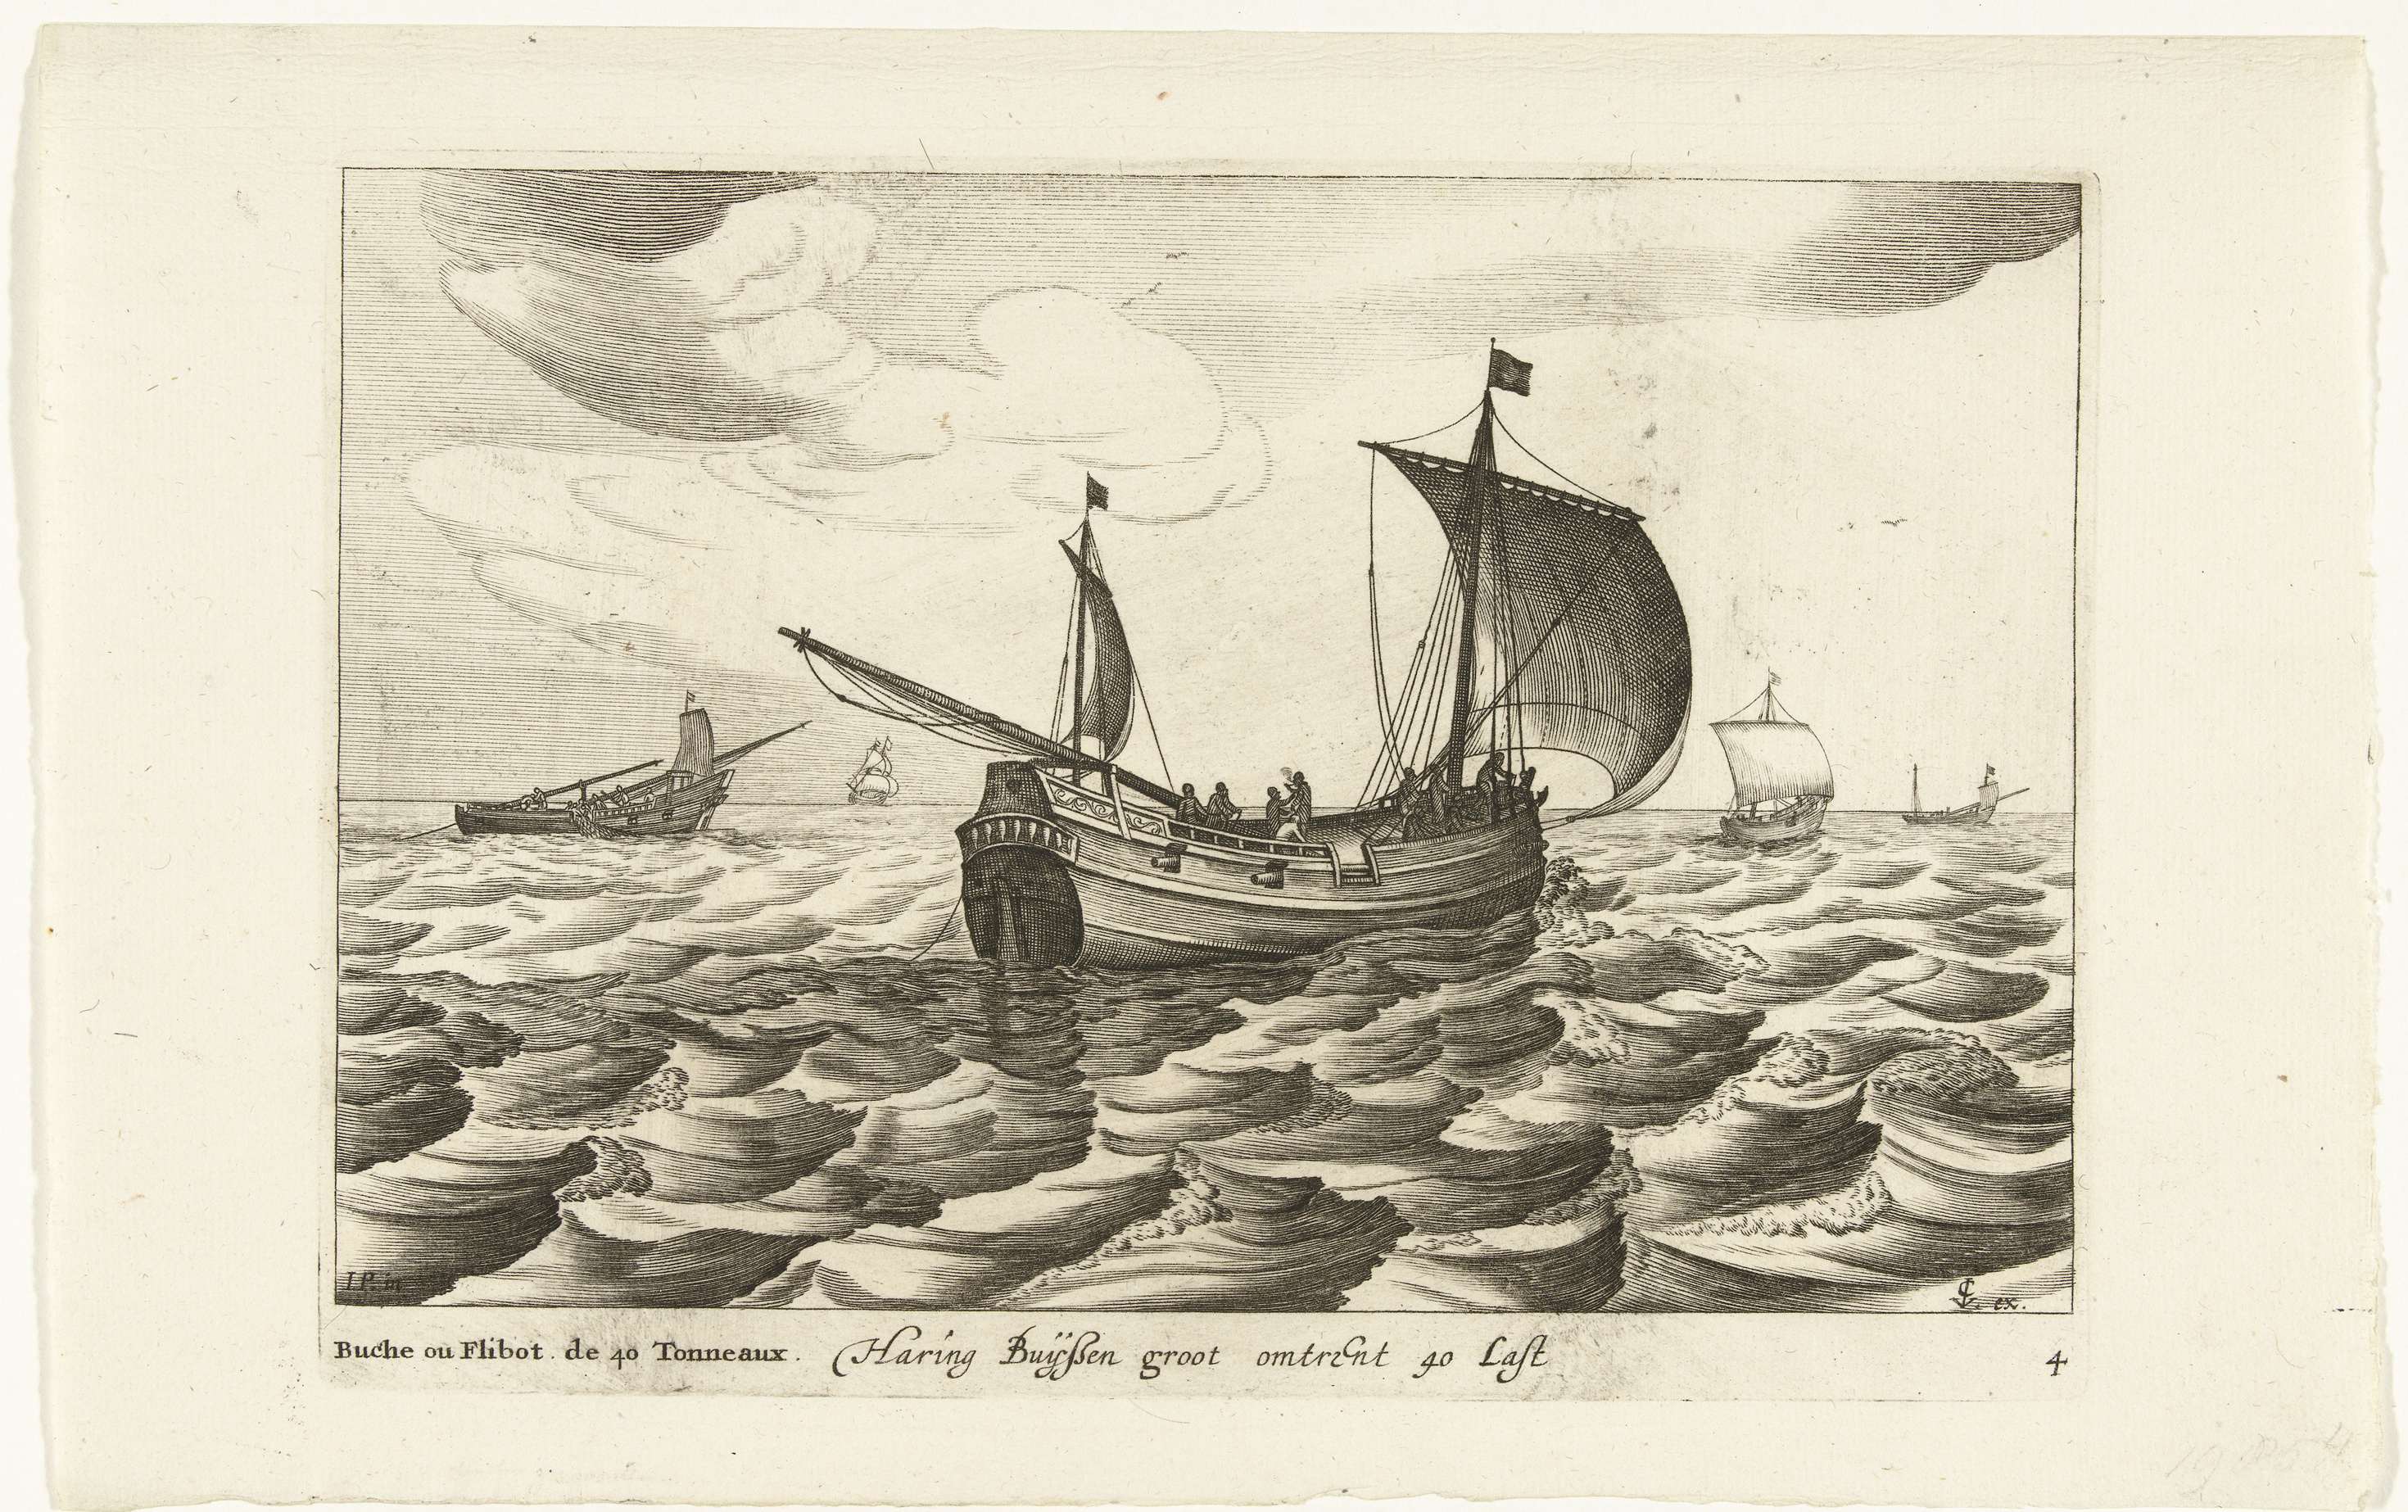 I.P. in.
ex.
Buche ou Flibot. de 40 Tonneaux. Haring Buijſsen groot omtrent 40 Laſt
4